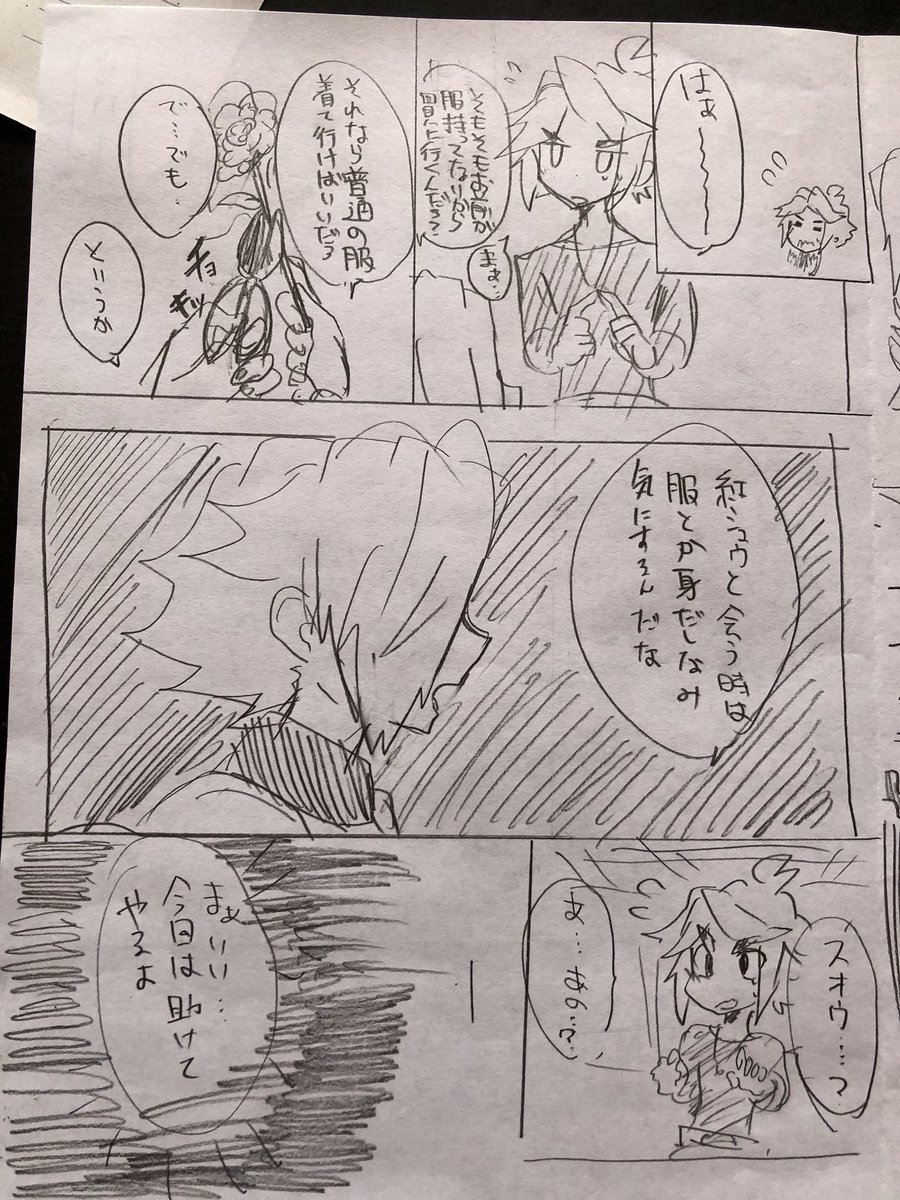 はぁ～～～～
そもそもお前が
服持ってないから
買いに行くんだろ?
まぁ…
それなら普通の服
着て行けばいいだろ
で…でも…
チョ
キッ
というか
紅ショウと会う時は
服とか身だしなみ
気にするんだな
スオウ…?
あ…あの…?
まぁいい…
今日は助けて
やるよ